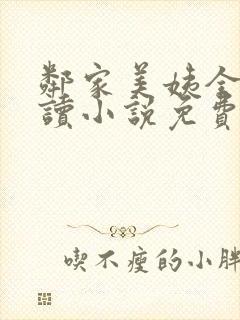 鄰家美姨全
讀小說免費
喫不瘦的小胖